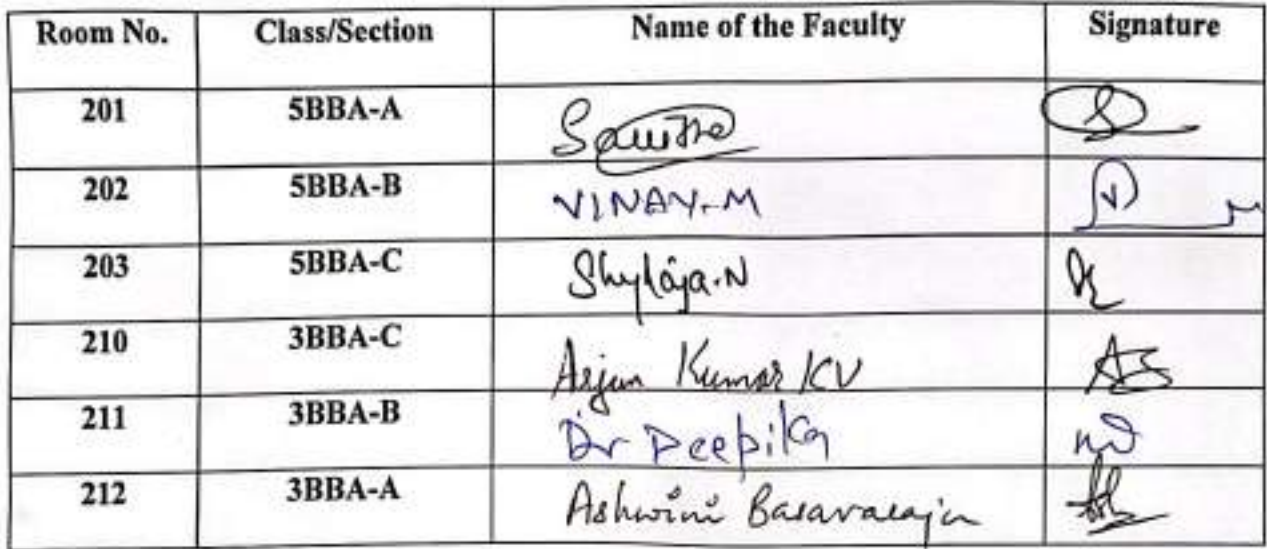 Room No. Class/Section Name of the Faculty Signature
201 5BBA-A
202 5BBA-B VINAY.M
203 5BBA-C Shylaja.N
210 3BBA-C Arjun Kumar KV
211 3BBA-B Dr Deepika
212 3BBA-A Ashwini Basavaraju